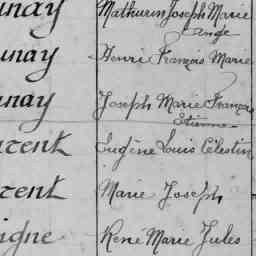 unay Mathurin Joseph Marie
Ange
unay Henri François Marie
unay Joseph Marie François
Etienne
urent Eugène Louis Célestin
urent Marie Joseph
igne René Marie Jules